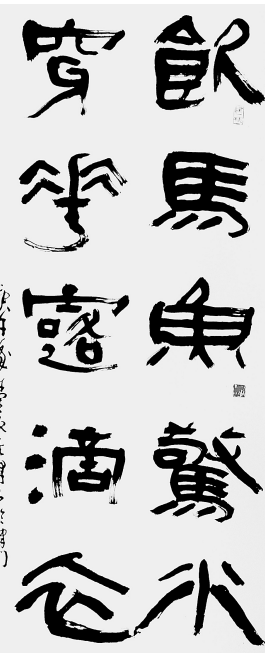 飲馬魚驚水
穿花露滴衣